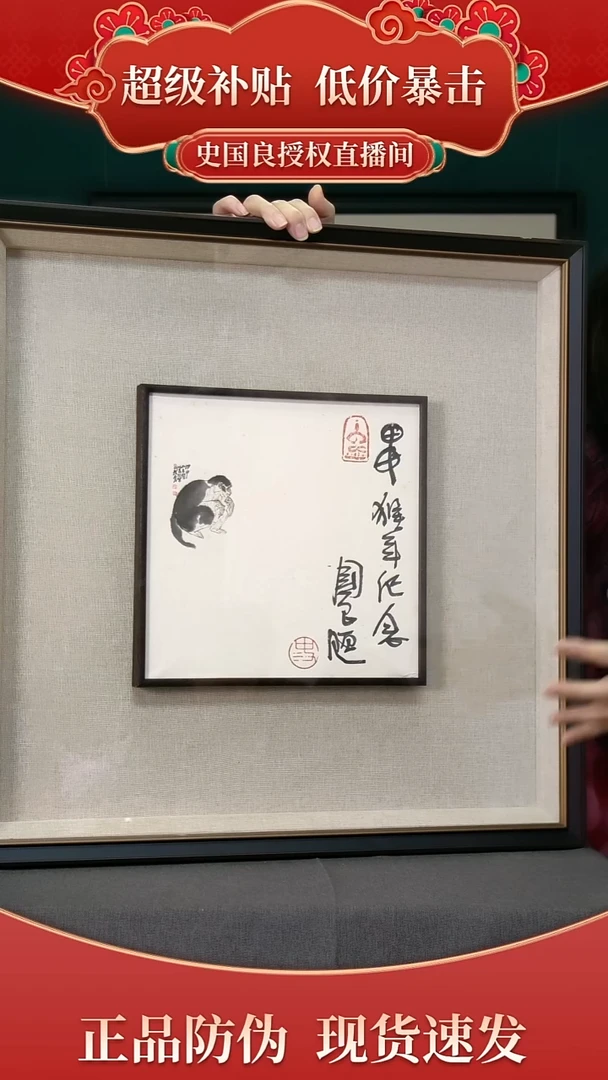 超级补贴 低价暴击
史国良授权直播间
甲申猴年纪念
国良题
正品防伪 现货速发